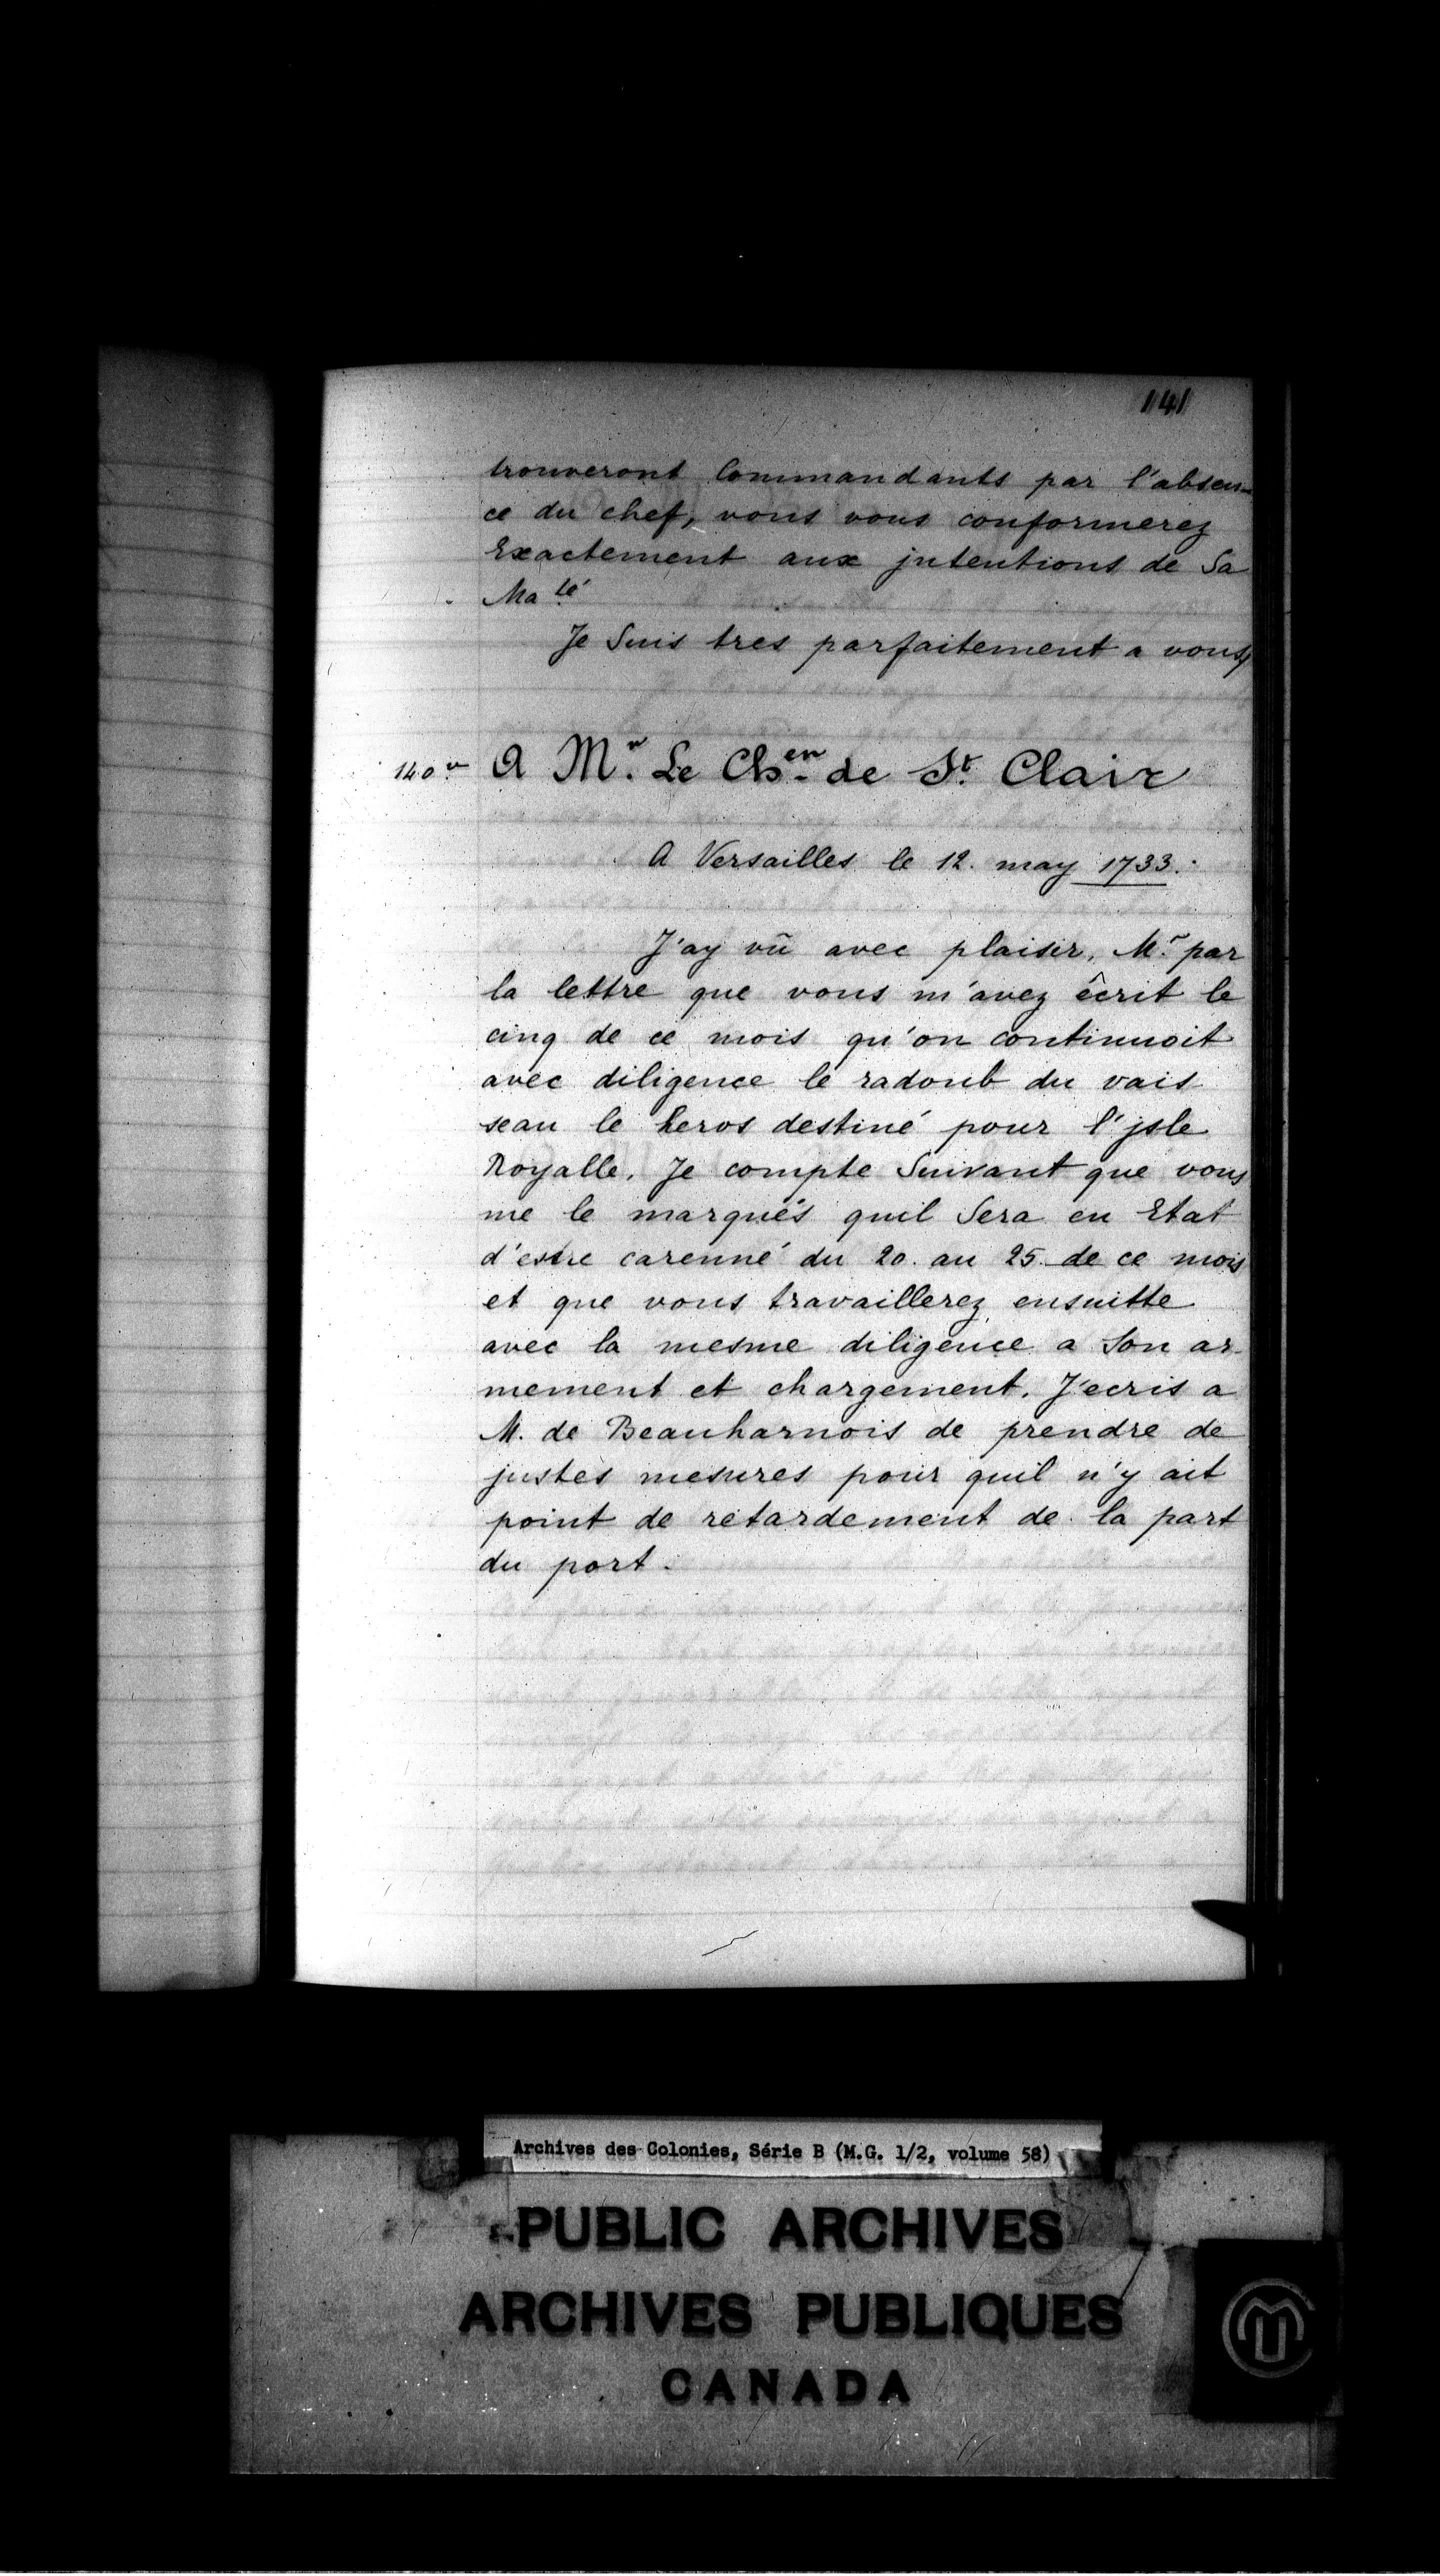 141
trouveront Commandants par l'absen-
ce du chef, vous vous conformerez
Exactement aux jntentions de Sa
Ma.té
Je Suis tres parfaitement a vous
140.v A M.r Le Ch.en de S.t Clair
A Versailles le 12. may 1733.
J'ay vû avec plaisir, M.r par
la lettre que vous m'avez êcrit le
cinq de ce mois qu'on continuoit
avec diligence le radoub du vais
seau le heros destiné pour l'jsle
Royalle. Je compte Suivant que vous
me le marqués quil Sera en Etat
d'estre carenné du 20. au 25. de ce mois
et que vous travaillerez ensuitte
avec la mesme diligence a Son ar-
mement et chargement. J'ecris a
M. de Beauharnois de prendre de
justes mesures pour quil n'y ait
point de retardement de la part
du port.
Archives des Colonies, Série B (M.G. 1/2, volume 58)
PUBLIC ARCHIVES
ARCHIVES PUBLIQUES
CANADA